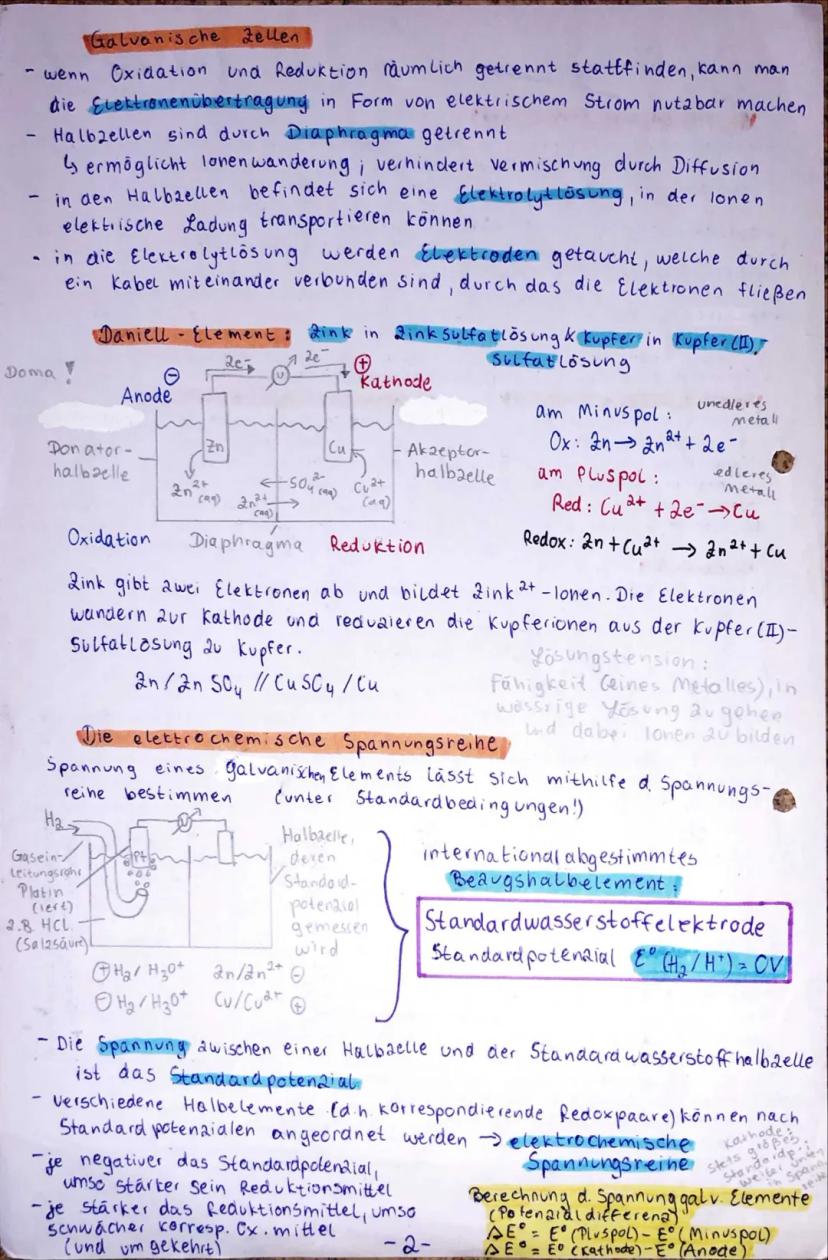 Galvanische Zellen
- wenn Oxidation und Reduktion räumlich getrennt stattfinden, kann man
die Elektronenübertragung in Form von elektrischem Strom nutzbar machen
- Halbzellen sind durch Diaphragma getrennt
↳ ermöglicht Ionenwanderung ; verhindert Vermischung durch Diffusion
- in den Halbzellen befindet sich eine Elektrolytlösung, in der Ionen
elektrische Ladung transportieren können
- in die Elektrolytlösung werden Elektroden getaucht, welche durch
ein Kabel miteinander verbunden sind, durch das die Elektronen fließen
Daniell-Element: Zink in Zinksulfatlösung & Kupfer in Kupfer(II)-
sulfatlösung
Doma!
⊖
Anode
2e⁻
U
2e⁻
⊕
Kathode
Donator-
halbzelle
Zn
Cu
Akzeptor-
halbzelle
Zn²⁺(aq)
← SO₄²⁻(aq)
Zn²⁺(aq) →
Cu²⁺(aq)
Oxidation
Diaphragma
Reduktion
am Minuspol: unedleres Metall
Ox: Zn → Zn²⁺ + 2e⁻
am Pluspol: edleres Metall
Red: Cu²⁺ + 2e⁻ → Cu
Redox: Zn + Cu²⁺ → Zn²⁺ + Cu
Zink gibt zwei Elektronen ab und bildet Zink²⁺-Ionen. Die Elektronen
wandern zur Kathode und reduzieren die Kupferionen aus der Kupfer(II)-
Sulfatlösung zu Kupfer.
Zn / Zn SO₄ // CuSO₄ / Cu
Lösungstension:
Fähigkeit (eines Metalles), in
wässrige Lösung zu gehen
und dabei Ionen zu bilden
Die elektrochemische Spannungsreihe
Spannung eines galvanischen Elements lässt sich mithilfe d. Spannungs-
reihe bestimmen (unter Standardbedingungen!)
H₂
Gasein-
leitungsrohr
Platin
(iert)
z.B. HCl
(Salzsäure)
Pt
U
Halbzelle,
deren
Standard-
potenzial
gemessen
wird
⊕ H₂/H₃O⁺ Zn/Zn²⁺ ⊖
⊖ H₂/H₃O⁺ Cu/Cu²⁺ ⊕
international abgestimmtes
Bezugshalbelement:
Standardwasserstoffelektrode
Standardpotenzial E⁰(H₂/H⁺) = 0V
- Die Spannung zwischen einer Halbzelle und der Standardwasserstoffhalbzelle
ist das Standardpotenzial
- verschiedene Halbelemente (d.h. korrespondierende Redoxpaare) können nach
Standardpotenzialen angeordnet werden → elektrochemische
Spannungsreihe
- je negativer das Standardpotenzial,
umso stärker sein Reduktionsmittel
- je stärker das Reduktionsmittel, umso
schwächer korresp. Ox.mittel
(und umgekehrt)
Kathode:
stets größeres
Standardp.;
weiter unten
in Spann.
reihe
Berechnung d. Spannung galv. Elemente
(Potenzialdifferenz)
ΔE⁰ = E⁰(Pluspol) - E⁰(Minuspol)
ΔE⁰ = E⁰(Kathode) - E⁰(Anode)
-2-